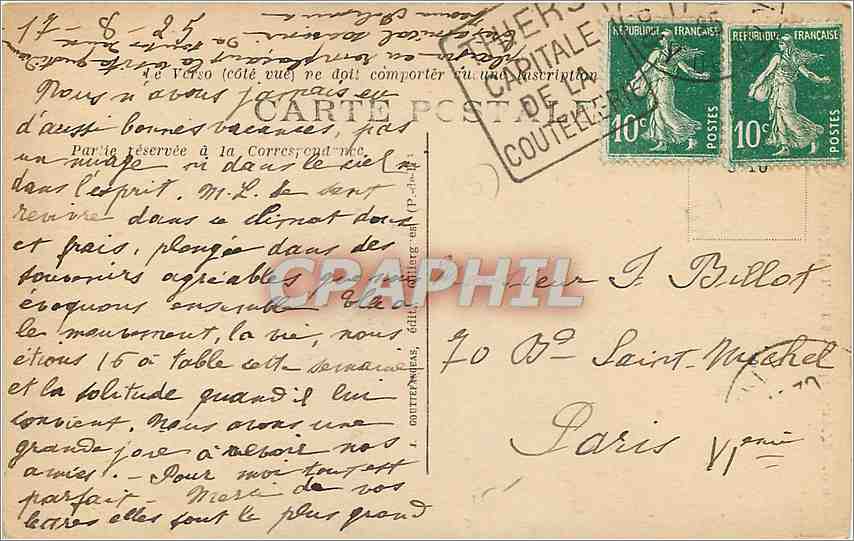 17-8-25
Le Verso (côté vue) ne doit comporter aucune inscription
CARTE POSTALE
Partie réservée à la Correspondance
THIERS
CAPITALE
DE LA
COUTELLERIE
REPUBLIQUE FRANÇAISE
10c
POSTES
REPUBLIQUE FRANÇAISE
10c
POSTES
Nous n'avons jamais eu
d'aussi bonnes vacances, pas
un nuage ni dans le ciel ni
dans l'esprit. M.L. se sent
revivre dans ce climat doux
et frais, plongée dans des
souvenirs agréables que nous
évoquons ensemble. Elle a
le mouvement, la vie, nous
étions 16 à table cette semaine
et la solitude quand il lui
convient. Nous avons une
grande joie à revoir nos
amies. - Pour moi tout est
parfait - Merci de vos
lettres elles sont le plus grand
J. GOUTTEFANGEAS, édit.
CPARPHIL
Monsieur F. Billot
70 Bd Saint-Michel
Paris VIème